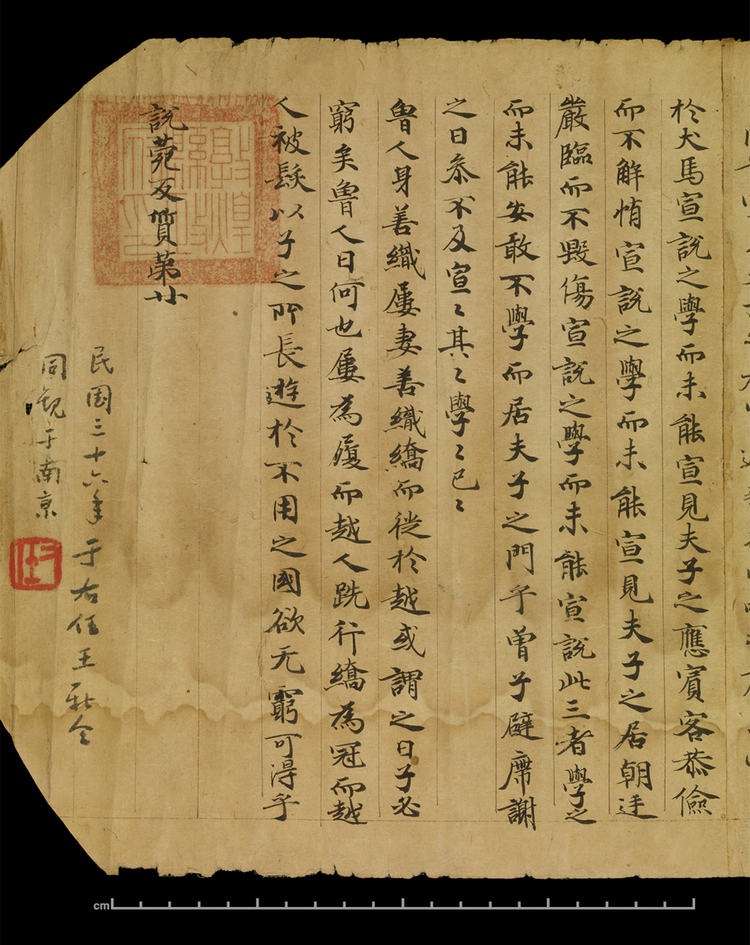 於犬馬宣說之學而未能宣見夫子之應賓客恭儉
而不解惰宣說之學而未能宣見夫子之居朝廷
嚴臨而不毀傷宣說之學而未能宣說此三者學之
而未能安敢不學而居夫子之門乎曾子辟席謝
之曰參不及宣〻其〻學〻已〻
魯人身善織屨妻善織縞而徙於越或謂之曰子必
窮矣魯人曰何也屨為履而越人跣行縞為冠而越
人被髮以子之所長遊於不用之國欲无窮可得乎
說菀反質第廿
民国三十六年于右任王新令
同观于南京
cm